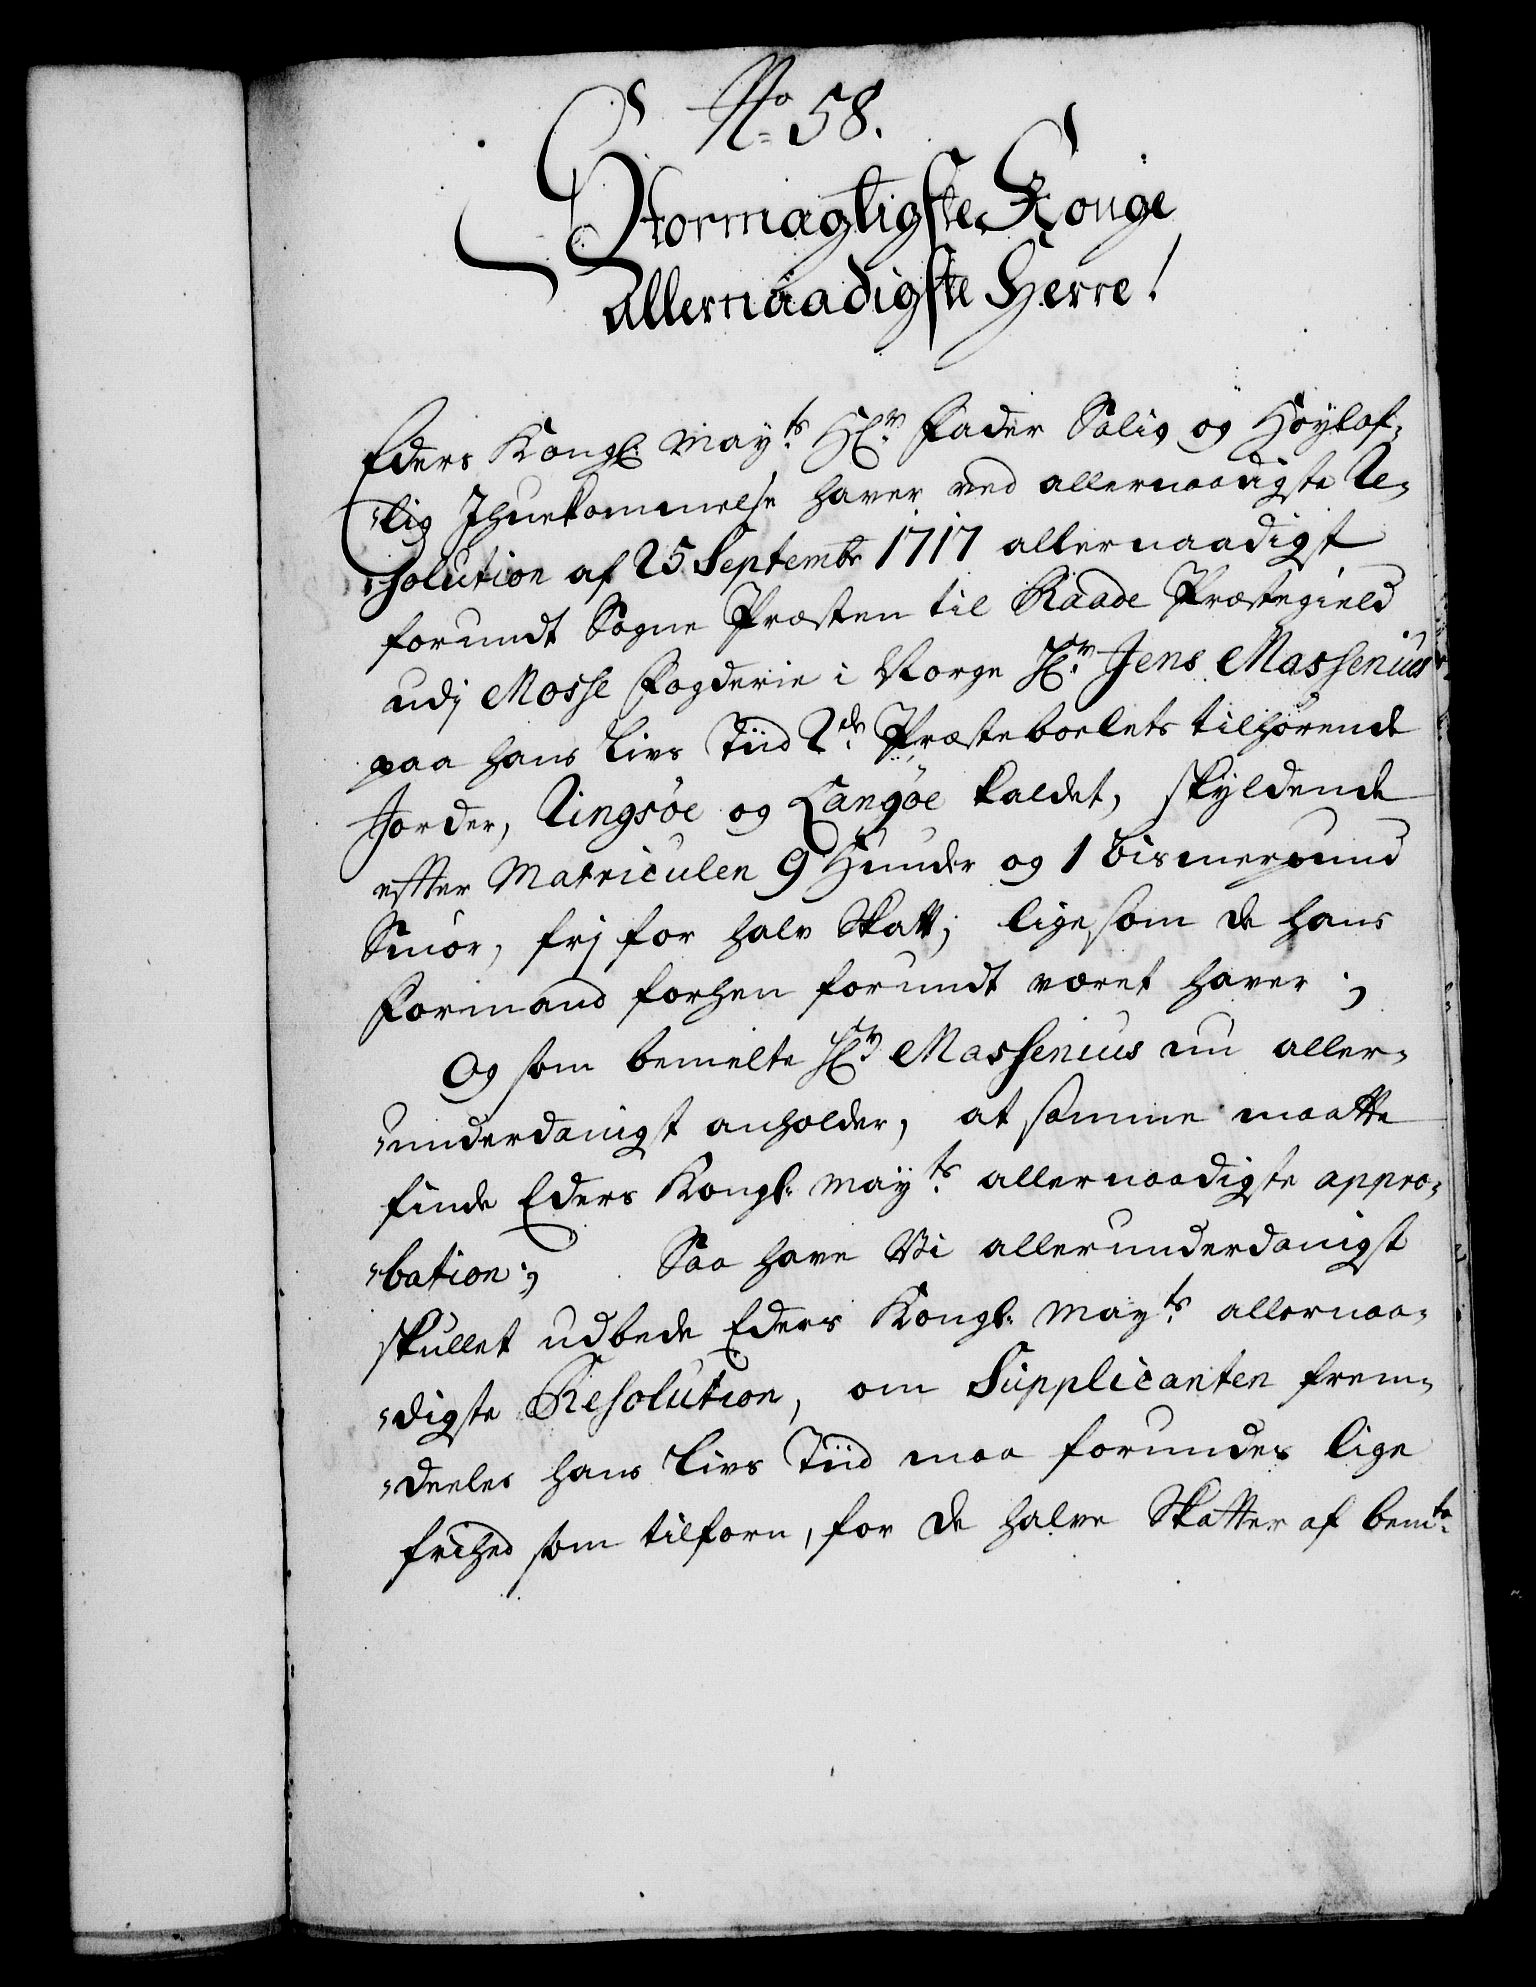 No 58.
Stormagtigste Konge
Allernaadigste Herre!
Eders Kongl: Mayts Hr Fader Salig og Høylof-
-lig Ihuekommelse haver ved allernaadigste Re-
-solution af 25 Septembr 1717 allernaadigst
forundt Sogne Præsten til Raade Præstegield
udj Mosse Fogderie i Norge Hr Jens Massenius
paa hans Livs Tiid 2de Præsteboelets tilhørende
Jorder, Ringsøe og Langøe kaldet, skyldende
efter Matriculen 9 Huuder og 1 bismerpund
Smør, frj for halv Skatt; ligesom de hans
Formand forhen forundt været haver;
Og som bemelte Hr Massenius nu aller-
-underdanigst anholder, at samme maatte
finde Eders Kongl: Mayts allernaadigste appro-
-bation; Saa have Vi allerunderdanigst
skullet udbede Eders Kongl: Mayts allernaa-
-digste Resolution, om Supplicanten frem-
-deeles hans Livs Tiid maa forundes lige
frihed som tilforn, for de halve Skatter af bemte